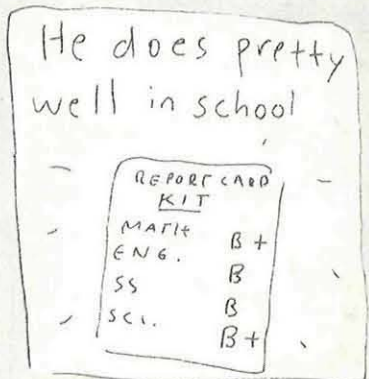 He does pretty
well in school
REPORT CARD
KIT
MATH B+
ENG. B
SS B
SCI. B+